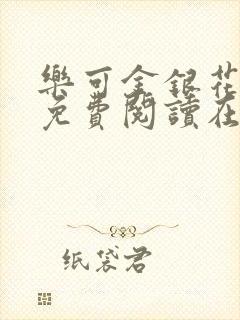 樂可金銀花
免費閱讀在
纸袋君